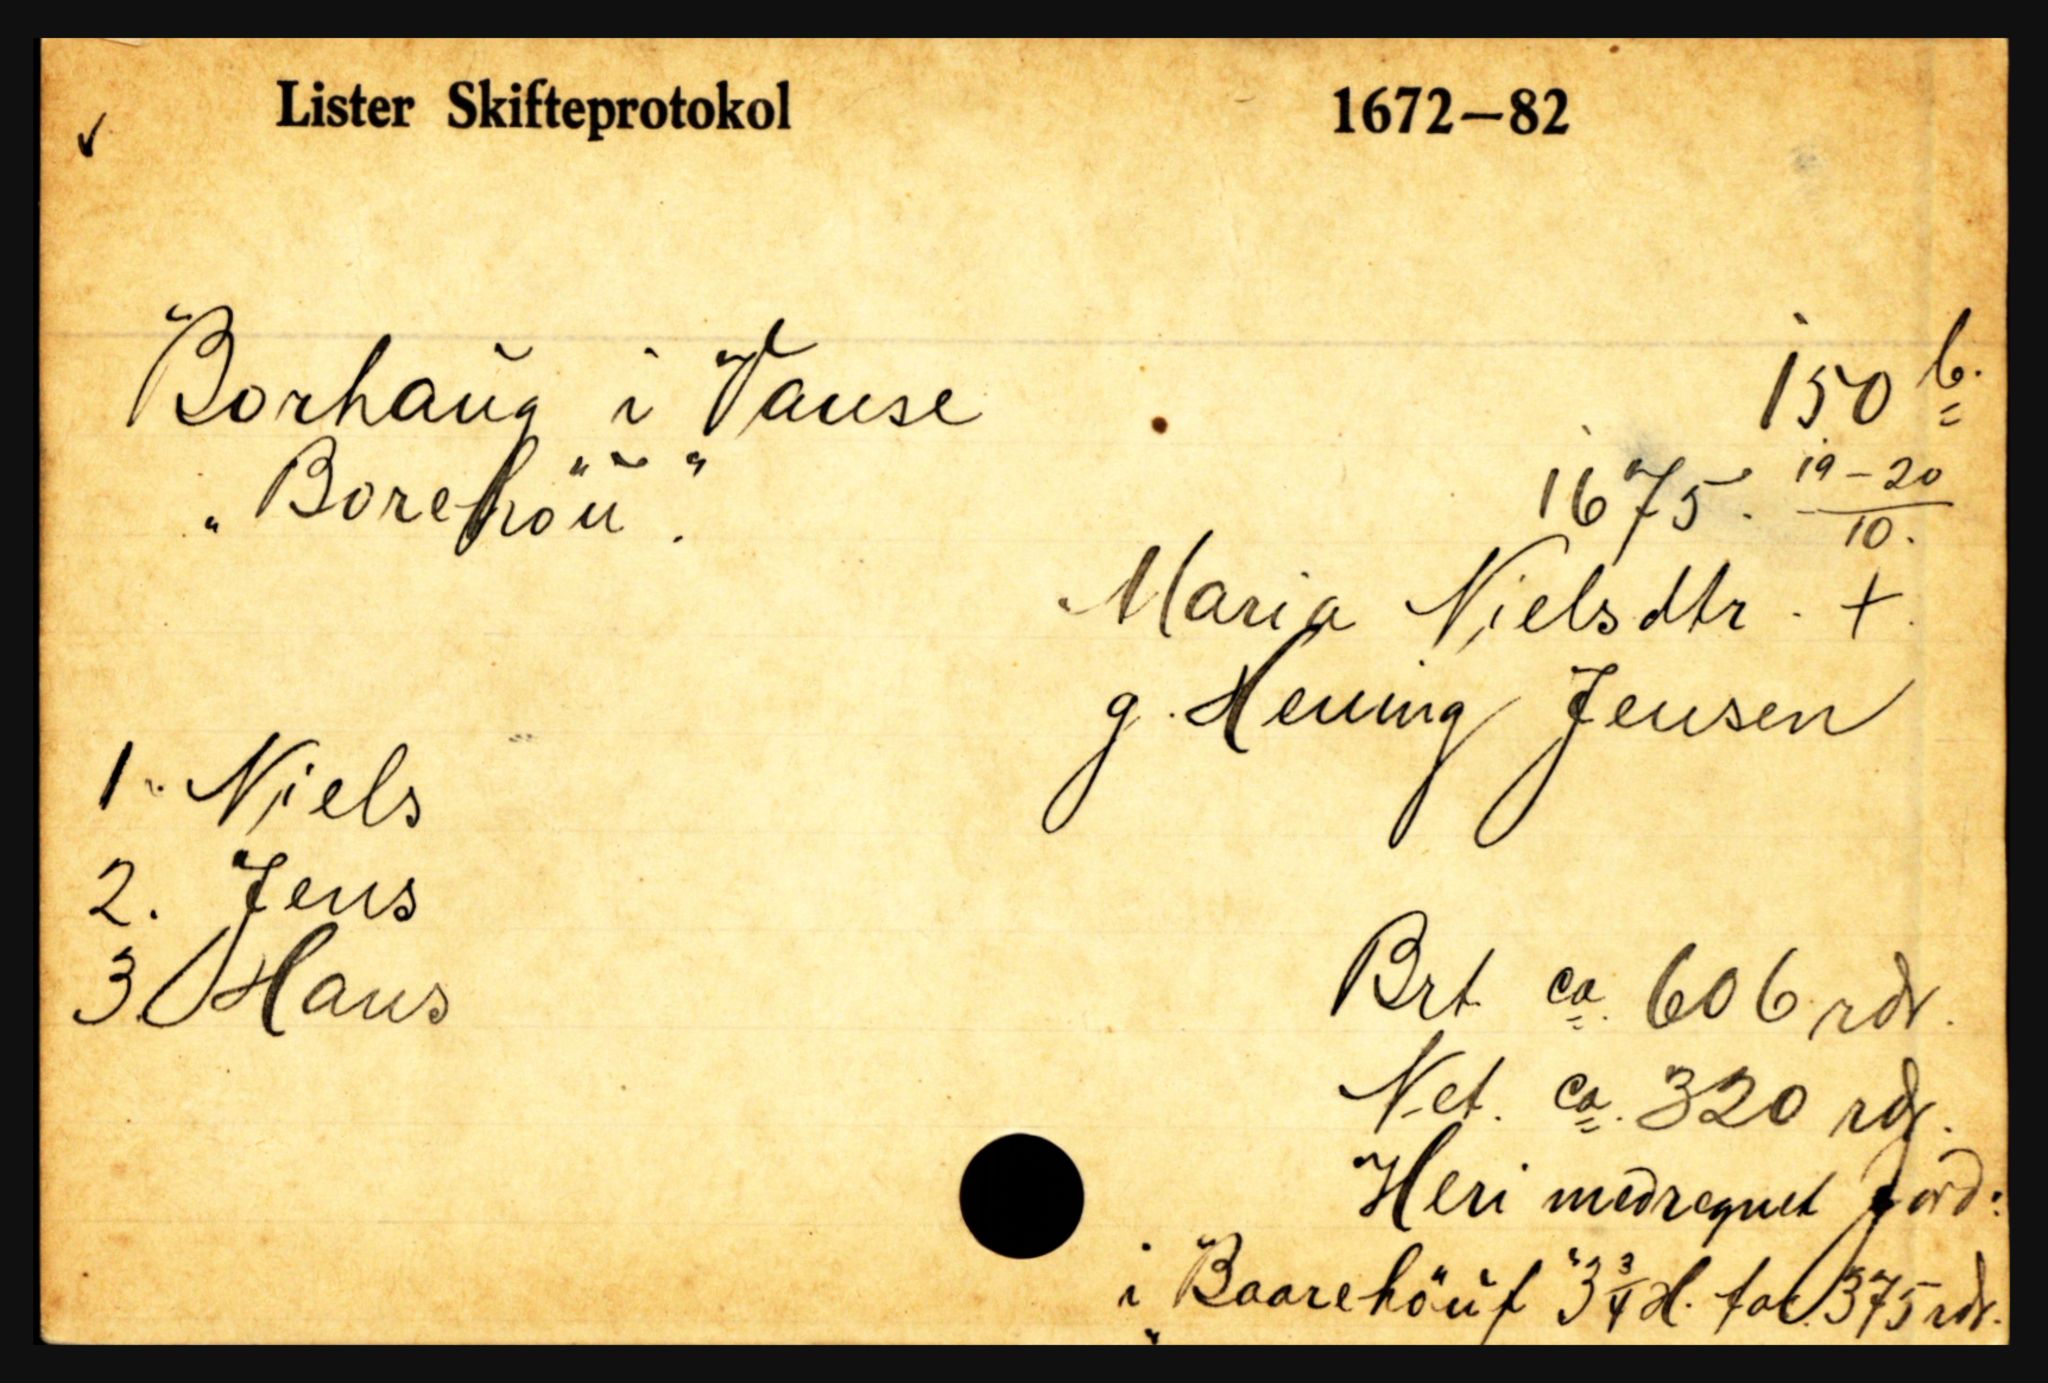 Lister Skifteprotokol 1672–82
Borhaug i Vanse 150 b.
„Borehöu". 1675. 19-20/10.
Maria Nielsdtr. +.
g. Hening Jensen
1. Niels
2. Jens
3. Hans
Brt. ca. 606 rdr.
Net. ca. 320 rdr.
Heri medregnet jord:
i „Baarehöuf" 3 3/4 H. for 375 rdr.